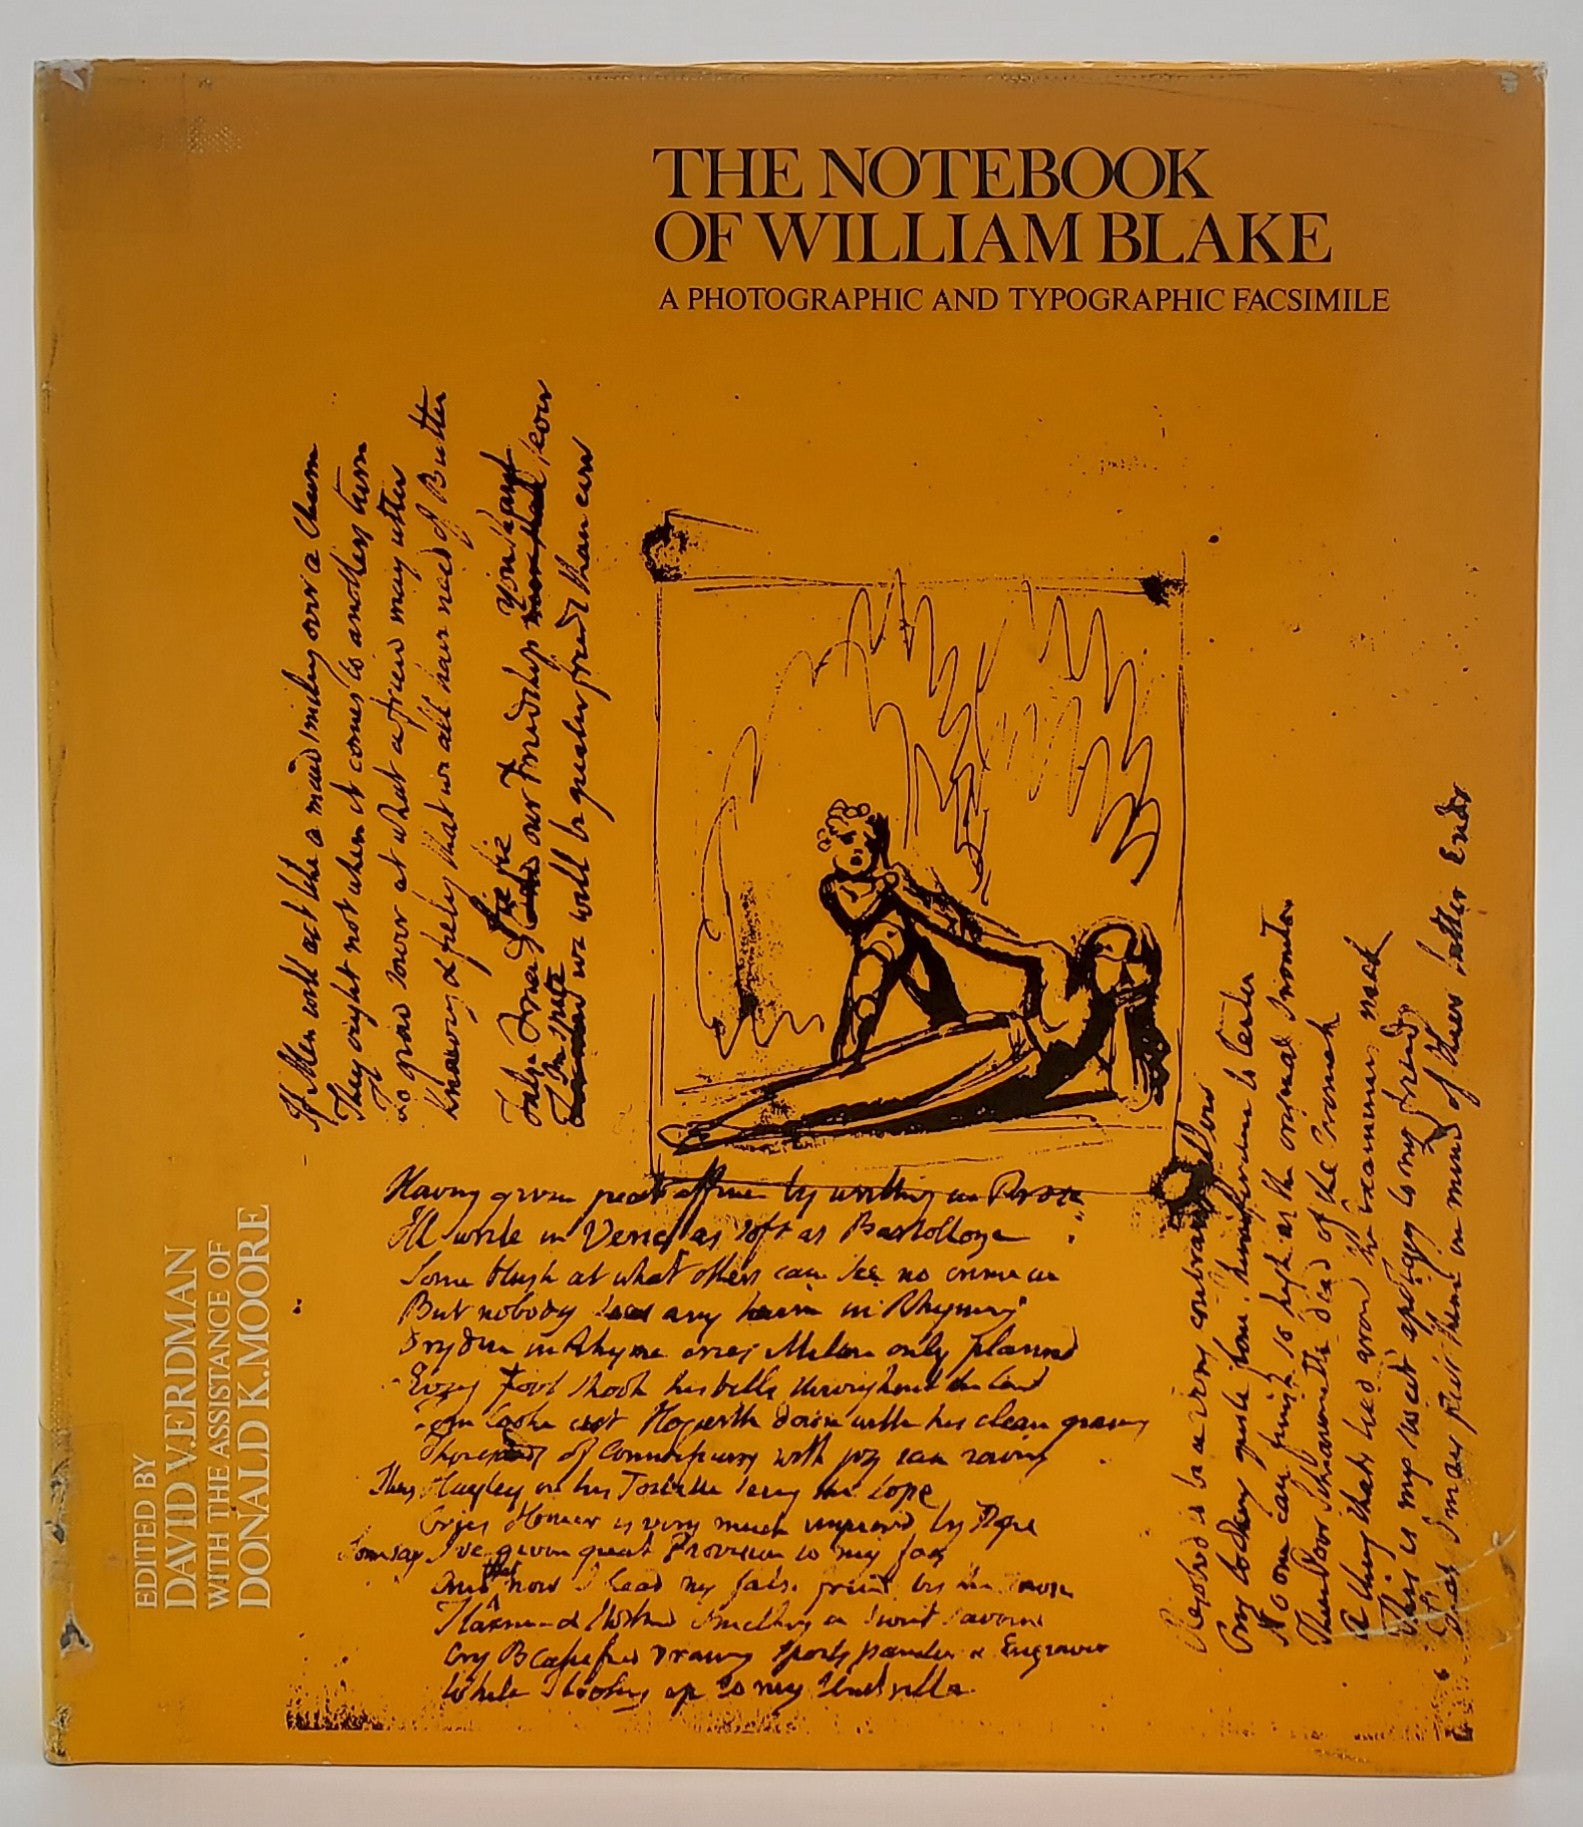 THE NOTEBOOK
OF WILLIAM BLAKE
A PHOTOGRAPHIC AND TYPOGRAPHIC FACSIMILE
If Men will act like a maid smiling over a Churn
They ought not when it comes to anothers turn
To grow sower at what a friend may utter
Knowing & feeling that we all have need of Butter
False Friends fie fie our Friendship You shant sever
In spite we will be greater friends than ever
Having given great offence by writing in Prose
Ill write in Verse as soft as Bartolloze
Some blush at what others can see no crime in
But nobody sees any harm in Rhyming
Dryden in Rhyme cries Milton only plannd
Every Fool shook his bells throughout the land
Tom Cooke cut Hogarth down with his clean graving
Thousands of Connoisseurs with joy ran raving
Thus Hayley on his Toilette seeing the sope
Cries Homer is very much improvd by Pope
Some say Ive given great Provision to my foes
And that now I lead my false friends by the nose
Flaxman & Stothard smelling a sweet savour
Cry Blakified drawing spoils painter & Engraver
While I looking up to my Umbrella
Resolvd to be a very contrary fellow
Cry looking quite from to Center
No one can finish so high as the original Inventor
Thus Poor Schiavonetti died of the Cromek
A thing thats tied around the Examiners neck
This is my sweet apology to my friends
That I may put them in mind of their latter Ends
EDITED BY
DAVID V. ERDMAN
WITH THE ASSISTANCE OF
DONALD K. MOORE